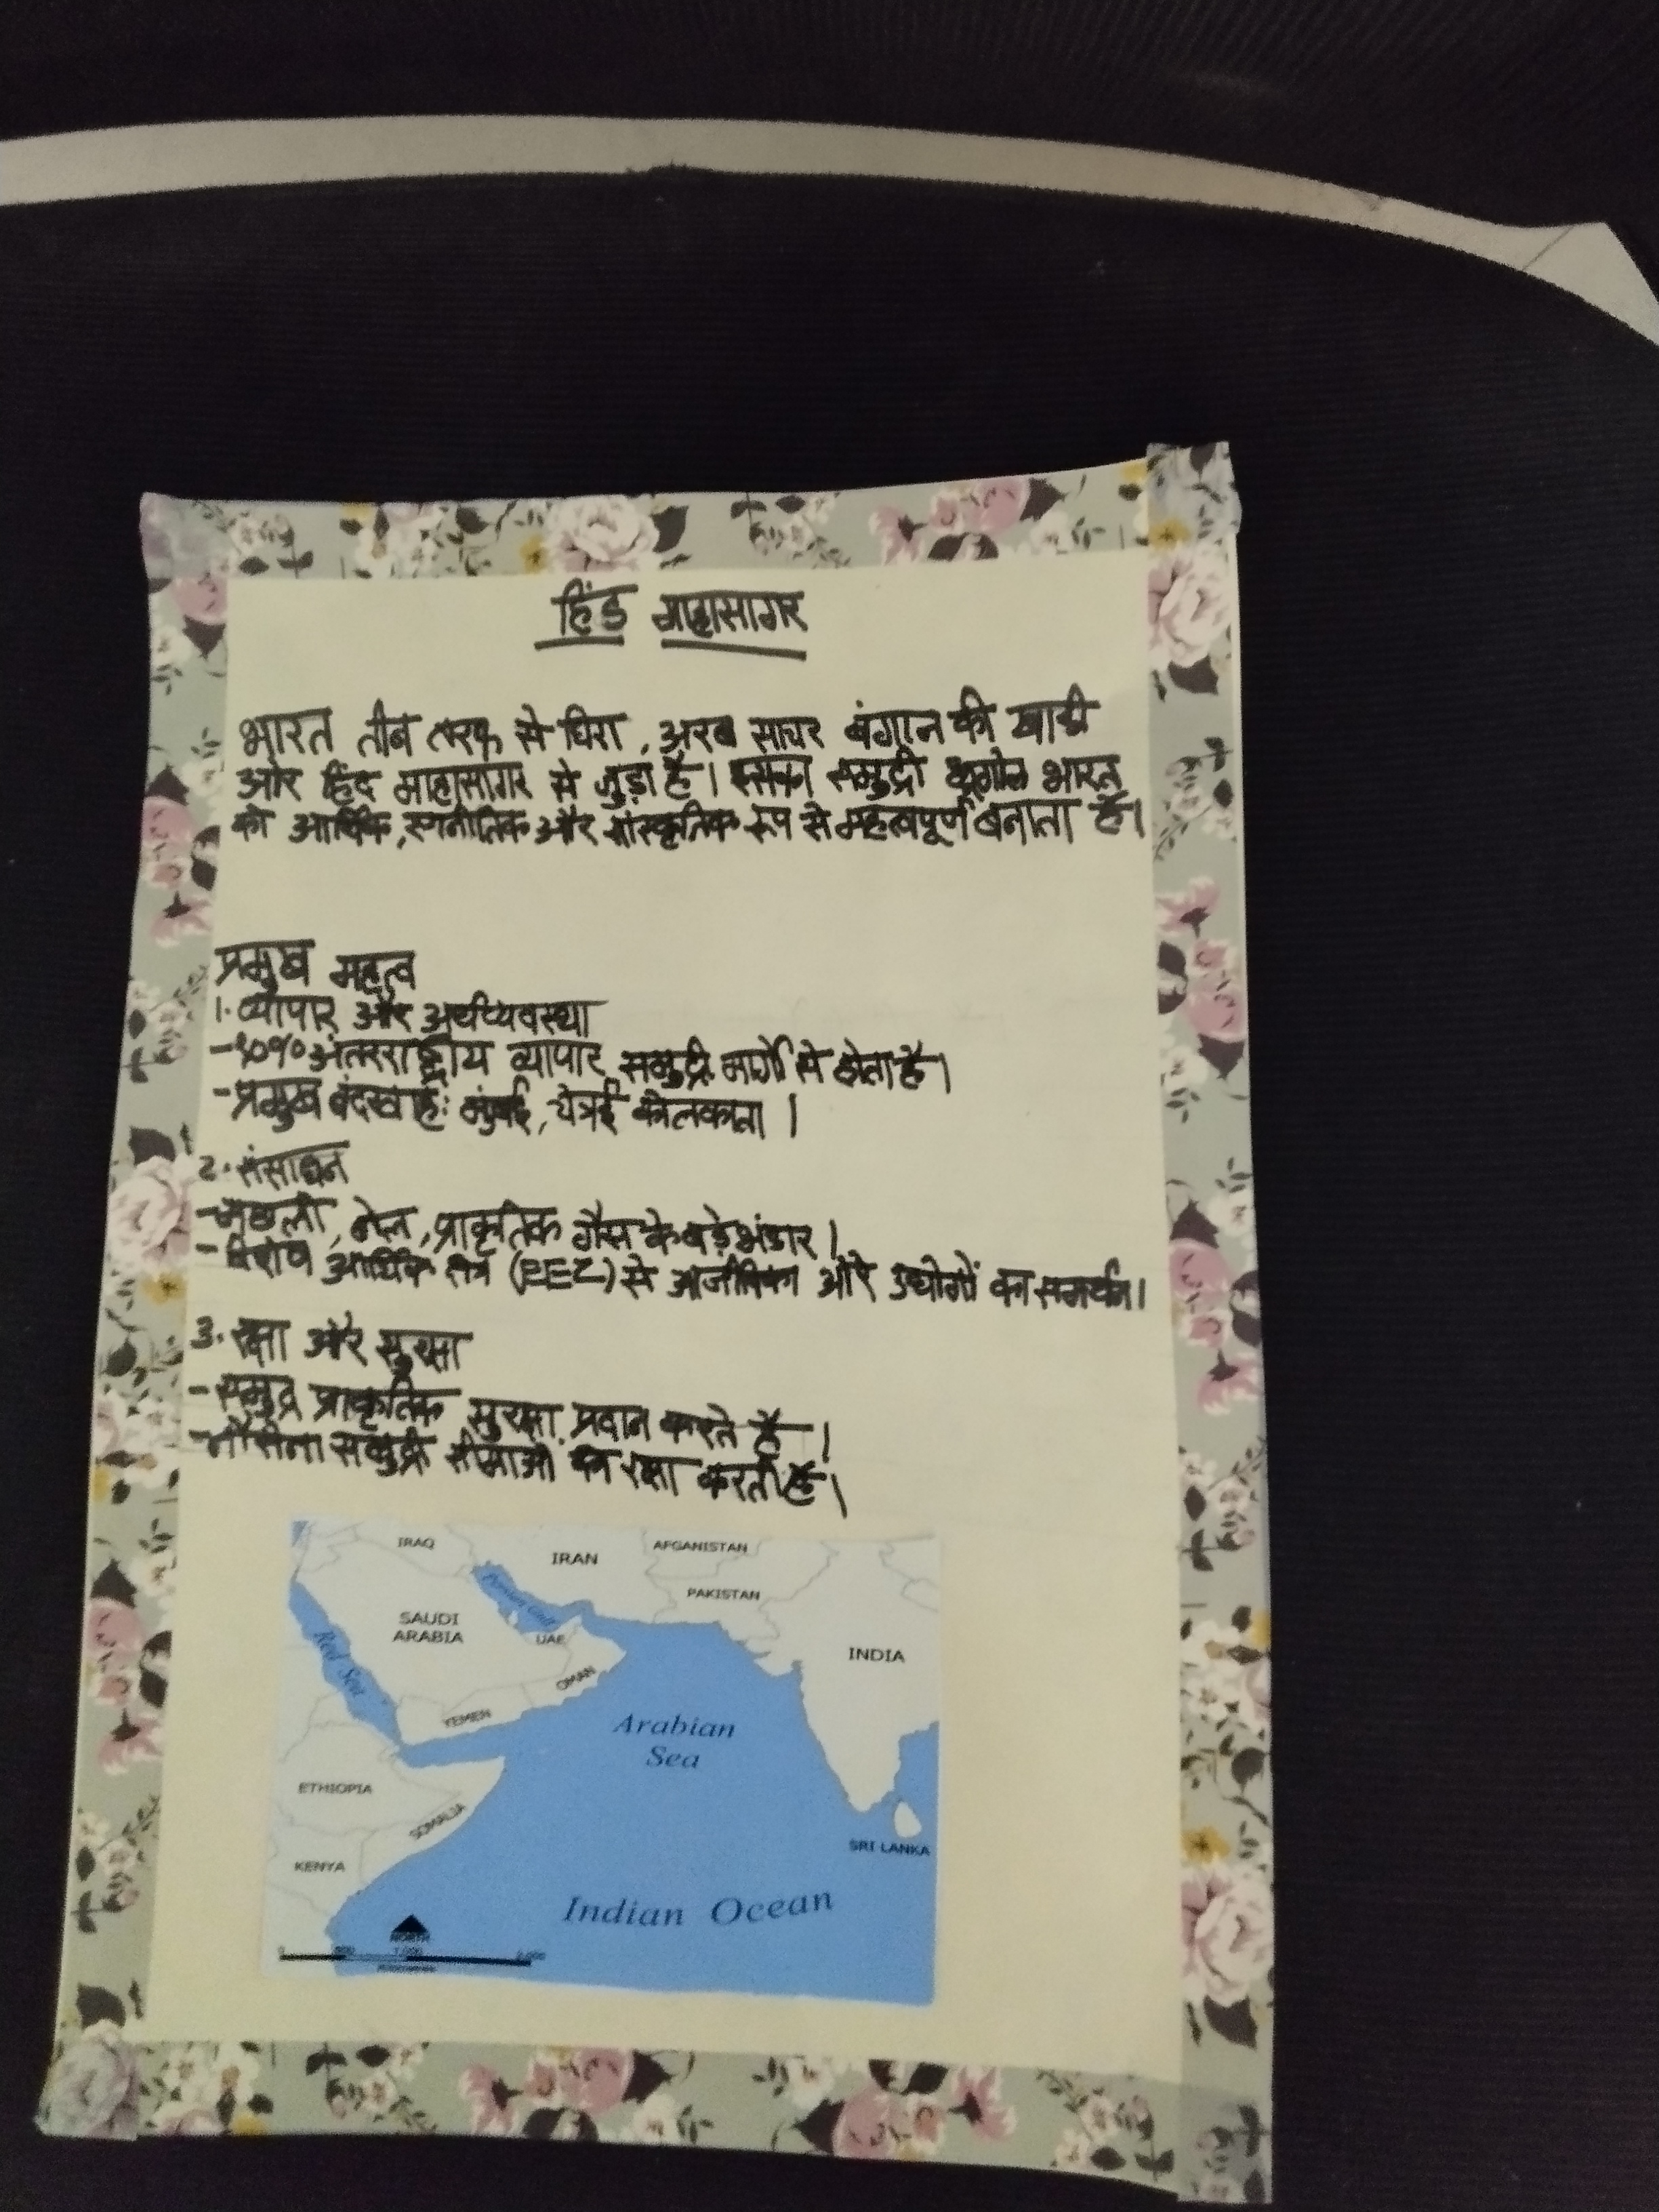 हिंड माहासागर
भारत तीन तरफ से घिरा, अरब सागर बंगाल की खाड़ी
और हिंद माहासागर से जुड़ा है। इसका समुद्री भूगोल भारत
को आर्थिक, रणनीतिक और सांस्कृतिक रूप से महत्वपूर्ण बनाता है।
प्रमुख महत्व
1. व्यापार और अर्थव्यवस्था
-90% अंतरराष्ट्रीय व्यापार समुद्री मार्गो से होता है।
-प्रमुख मुंबई, चेन्नई कोलकाता।
2. संसाधन
-मछली, तेल, प्राकृतिक गैस के बड़े भंडार।
-विशेष आर्थिक क्षेत्र (EEZ) से आजीविका और उद्योगों का समर्थन।
3. रक्षा और सुरक्षा
-समुद्र प्राकृतिक सुरक्षा प्रदान करते है।
-नौसेना समुद्री सीमाओं की रक्षा करती है।
IRAQ
IRAN
AFGANISTAN
PAKISTAN
Persian Gulf
SAUDI
ARABIA
UAE
INDIA
Red Sea
OMAN
YEMEN
Arabian
Sea
ETHIOPIA
SOMALIA
SRI LANKA
KENYA
Indian Ocean
NORTH
0 500 1,000 2,000